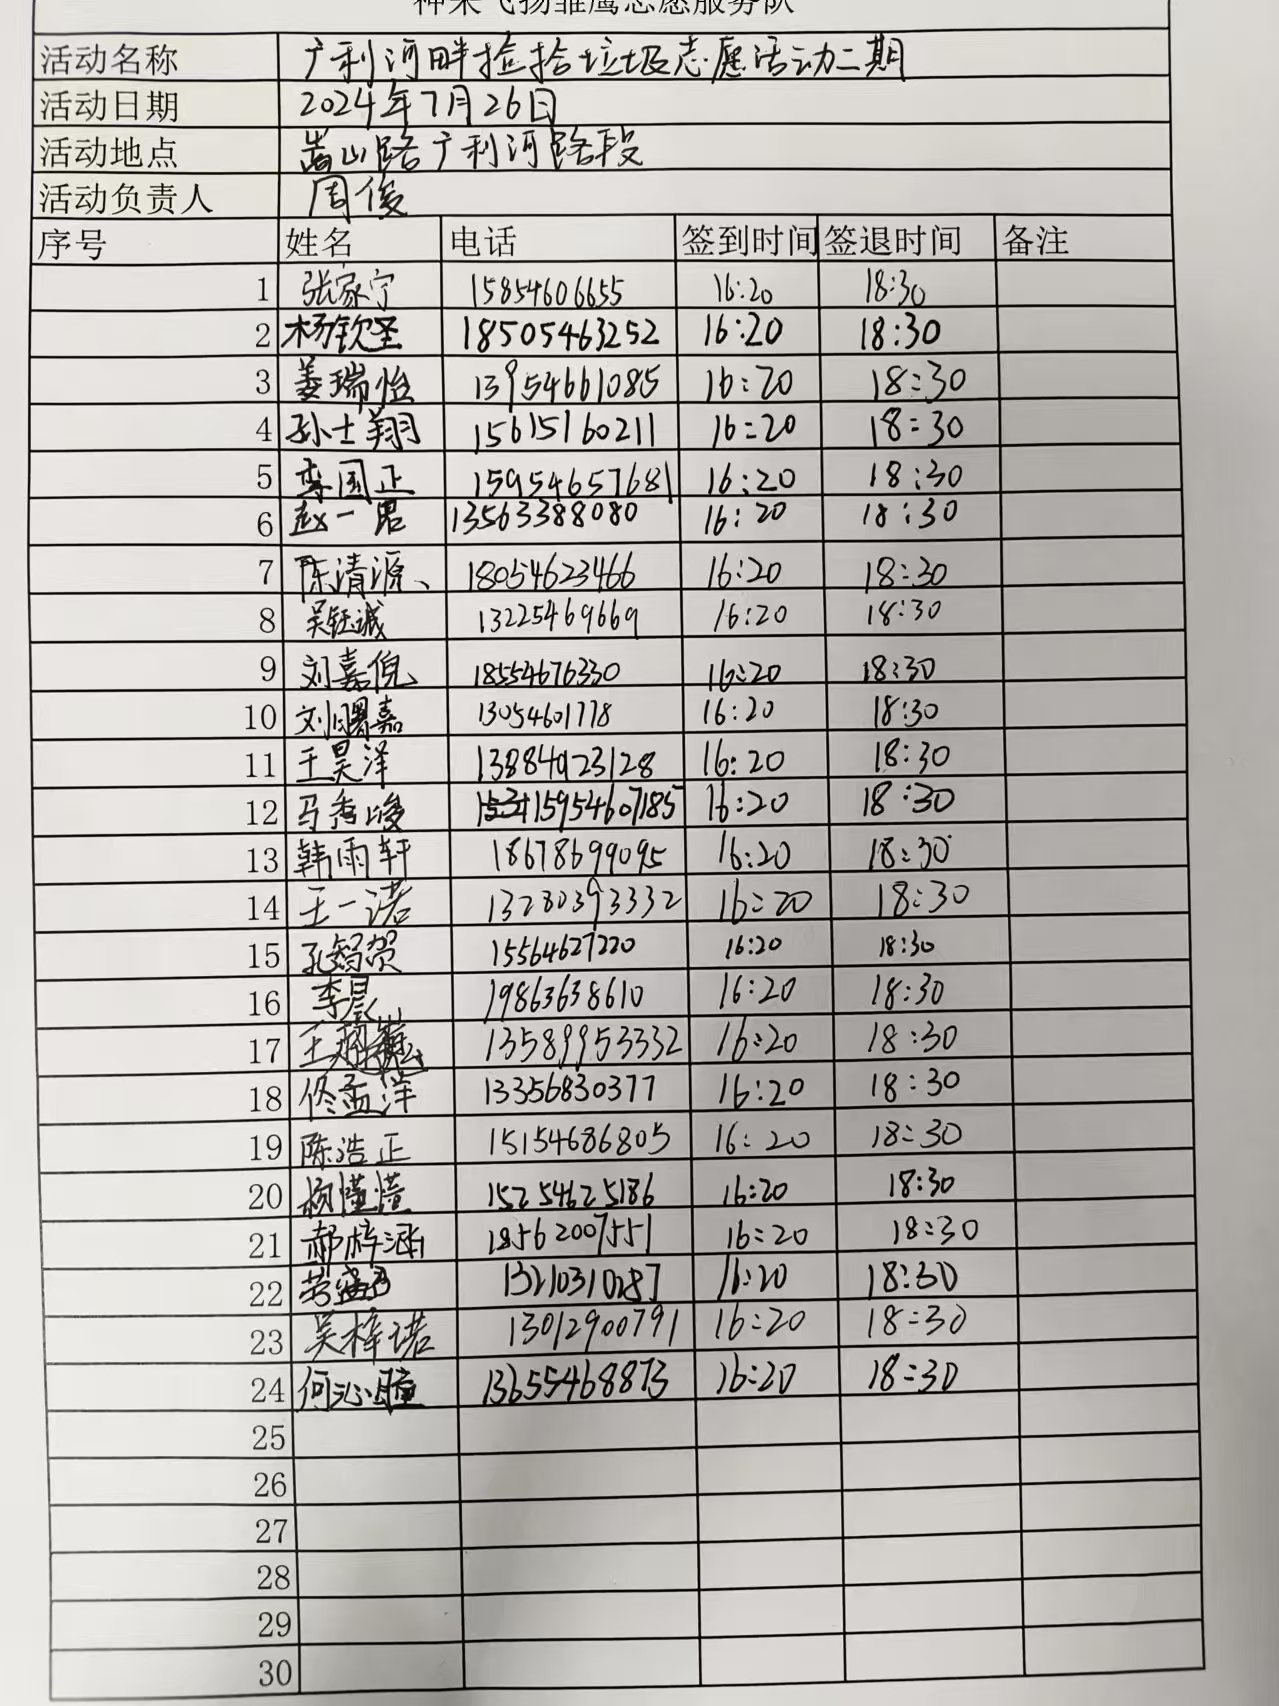 神采飞扬雏鹰志愿服务队
活动名称 广利河畔捡拾垃圾志愿活动二期
活动日期 2024年7月26日
活动地点 嵩山路广利河路段
活动负责人 周俊
序号 姓名 电话 签到时间 签退时间 备注
1 张家宁 15854606655 16:20 18:30
2 杨钦圣 18505463252 16:20 18:30
3 姜瑞怡 13954661085 16:20 18:30
4 孙士翔 15615160211 16:20 18:30
5 李国正 15954657681 16:20 18:30
6 赵一男 13563388080 16:20 18:30
7 陈清源、 18054623466 16:20 18:30
8 吴钰诚 13225469669 16:20 18:30
9 刘嘉倪 18554676330 16:20 18:30
10 刘曙嘉 13054601778 16:20 18:30
11 王昊泽 13884923128 16:20 18:30
12 马秀峻 15954607185 16:20 18:30
13 韩雨轩 18678699095 16:20 18:30
14 王一诺 13280393332 16:20 18:30
15 孔智贺 15564627220 16:20 18:30
16 李晨 19863638610 16:20 18:30
17 王 13589953332 16:20 18:30
18 佟孟洋 13356830377 16:20 18:30
19 陈浩正 15154686805 16:20 18:30
20 15254625186 16:20 18:30
21 郝梓涵 18562007551 16:20 18:30
22 13210310287 16:20 18:30
23 吴梓诺 13012900791 16:20 18:30
24 何沁瞳 13655468873 16:20 18:30
25
26
27
28
29
30